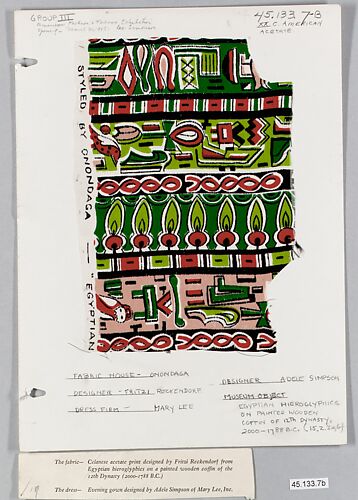 GROUP III
45.133.7-B
XX C AMERICAN
ACETATE
STYLED BY ONONDAGA — "EGYPTIAN
FABRIC HOUSE - ONONDAGA
DESIGNER - FRITZI RECKENDORF
DRESS FIRM - MARY LEE
DESIGNER ADELE SIMPSON
MUSEUM OBJECT
EGYPTIAN HIEROGLYPHICS
ON PAINTED WOODEN
COFFIN OF 12TH DYNASTY,
2000-1788 B.C.
The fabric— Celanese acetate print designed by Fritzi Reckendorf from
Egyptian hieroglyphics on a painted wooden coffin of the
12th Dynasty (2000-1788 B.C.)
The dress— Evening gown designed by Adele Simpson of Mary Lee, Inc.
45.133.7b